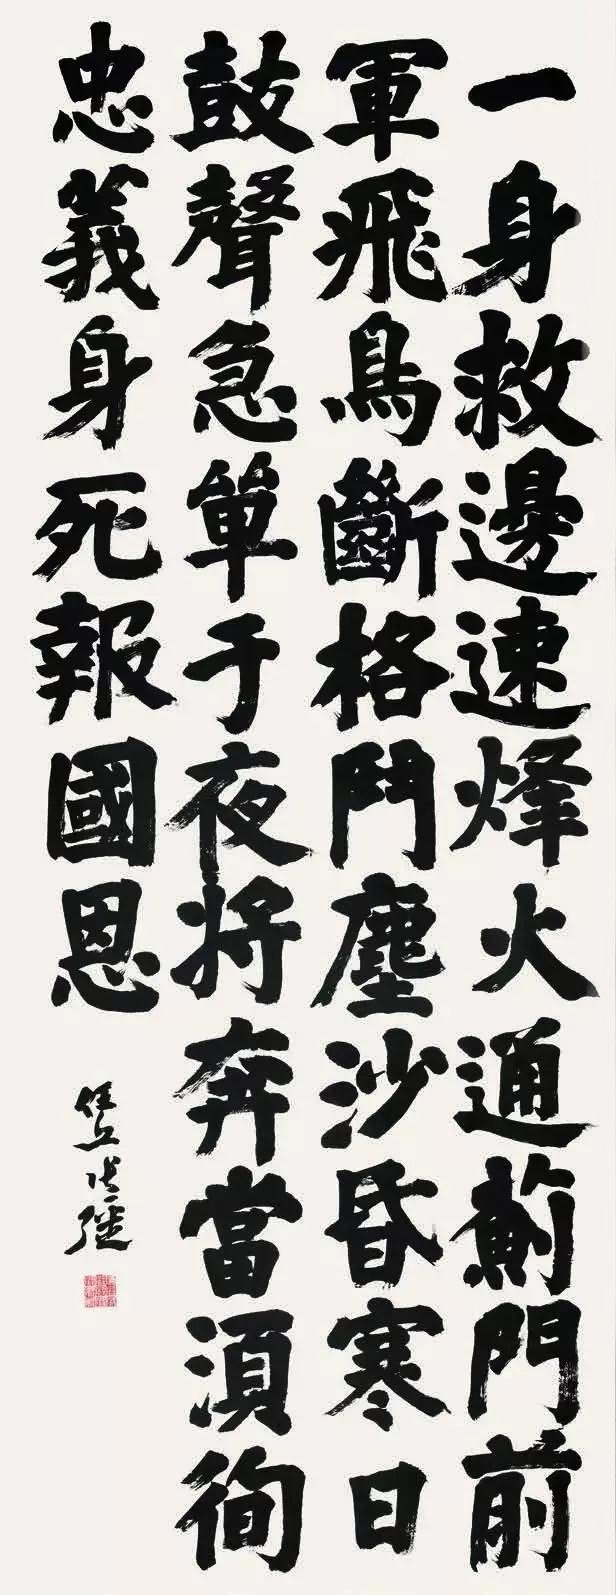 一身救邊速烽火通薊門前
軍飛鳥斷格鬥塵沙昏寒日
鼓聲急單于夜將奔當湏徇
忠義身死報國恩
任丘張繼